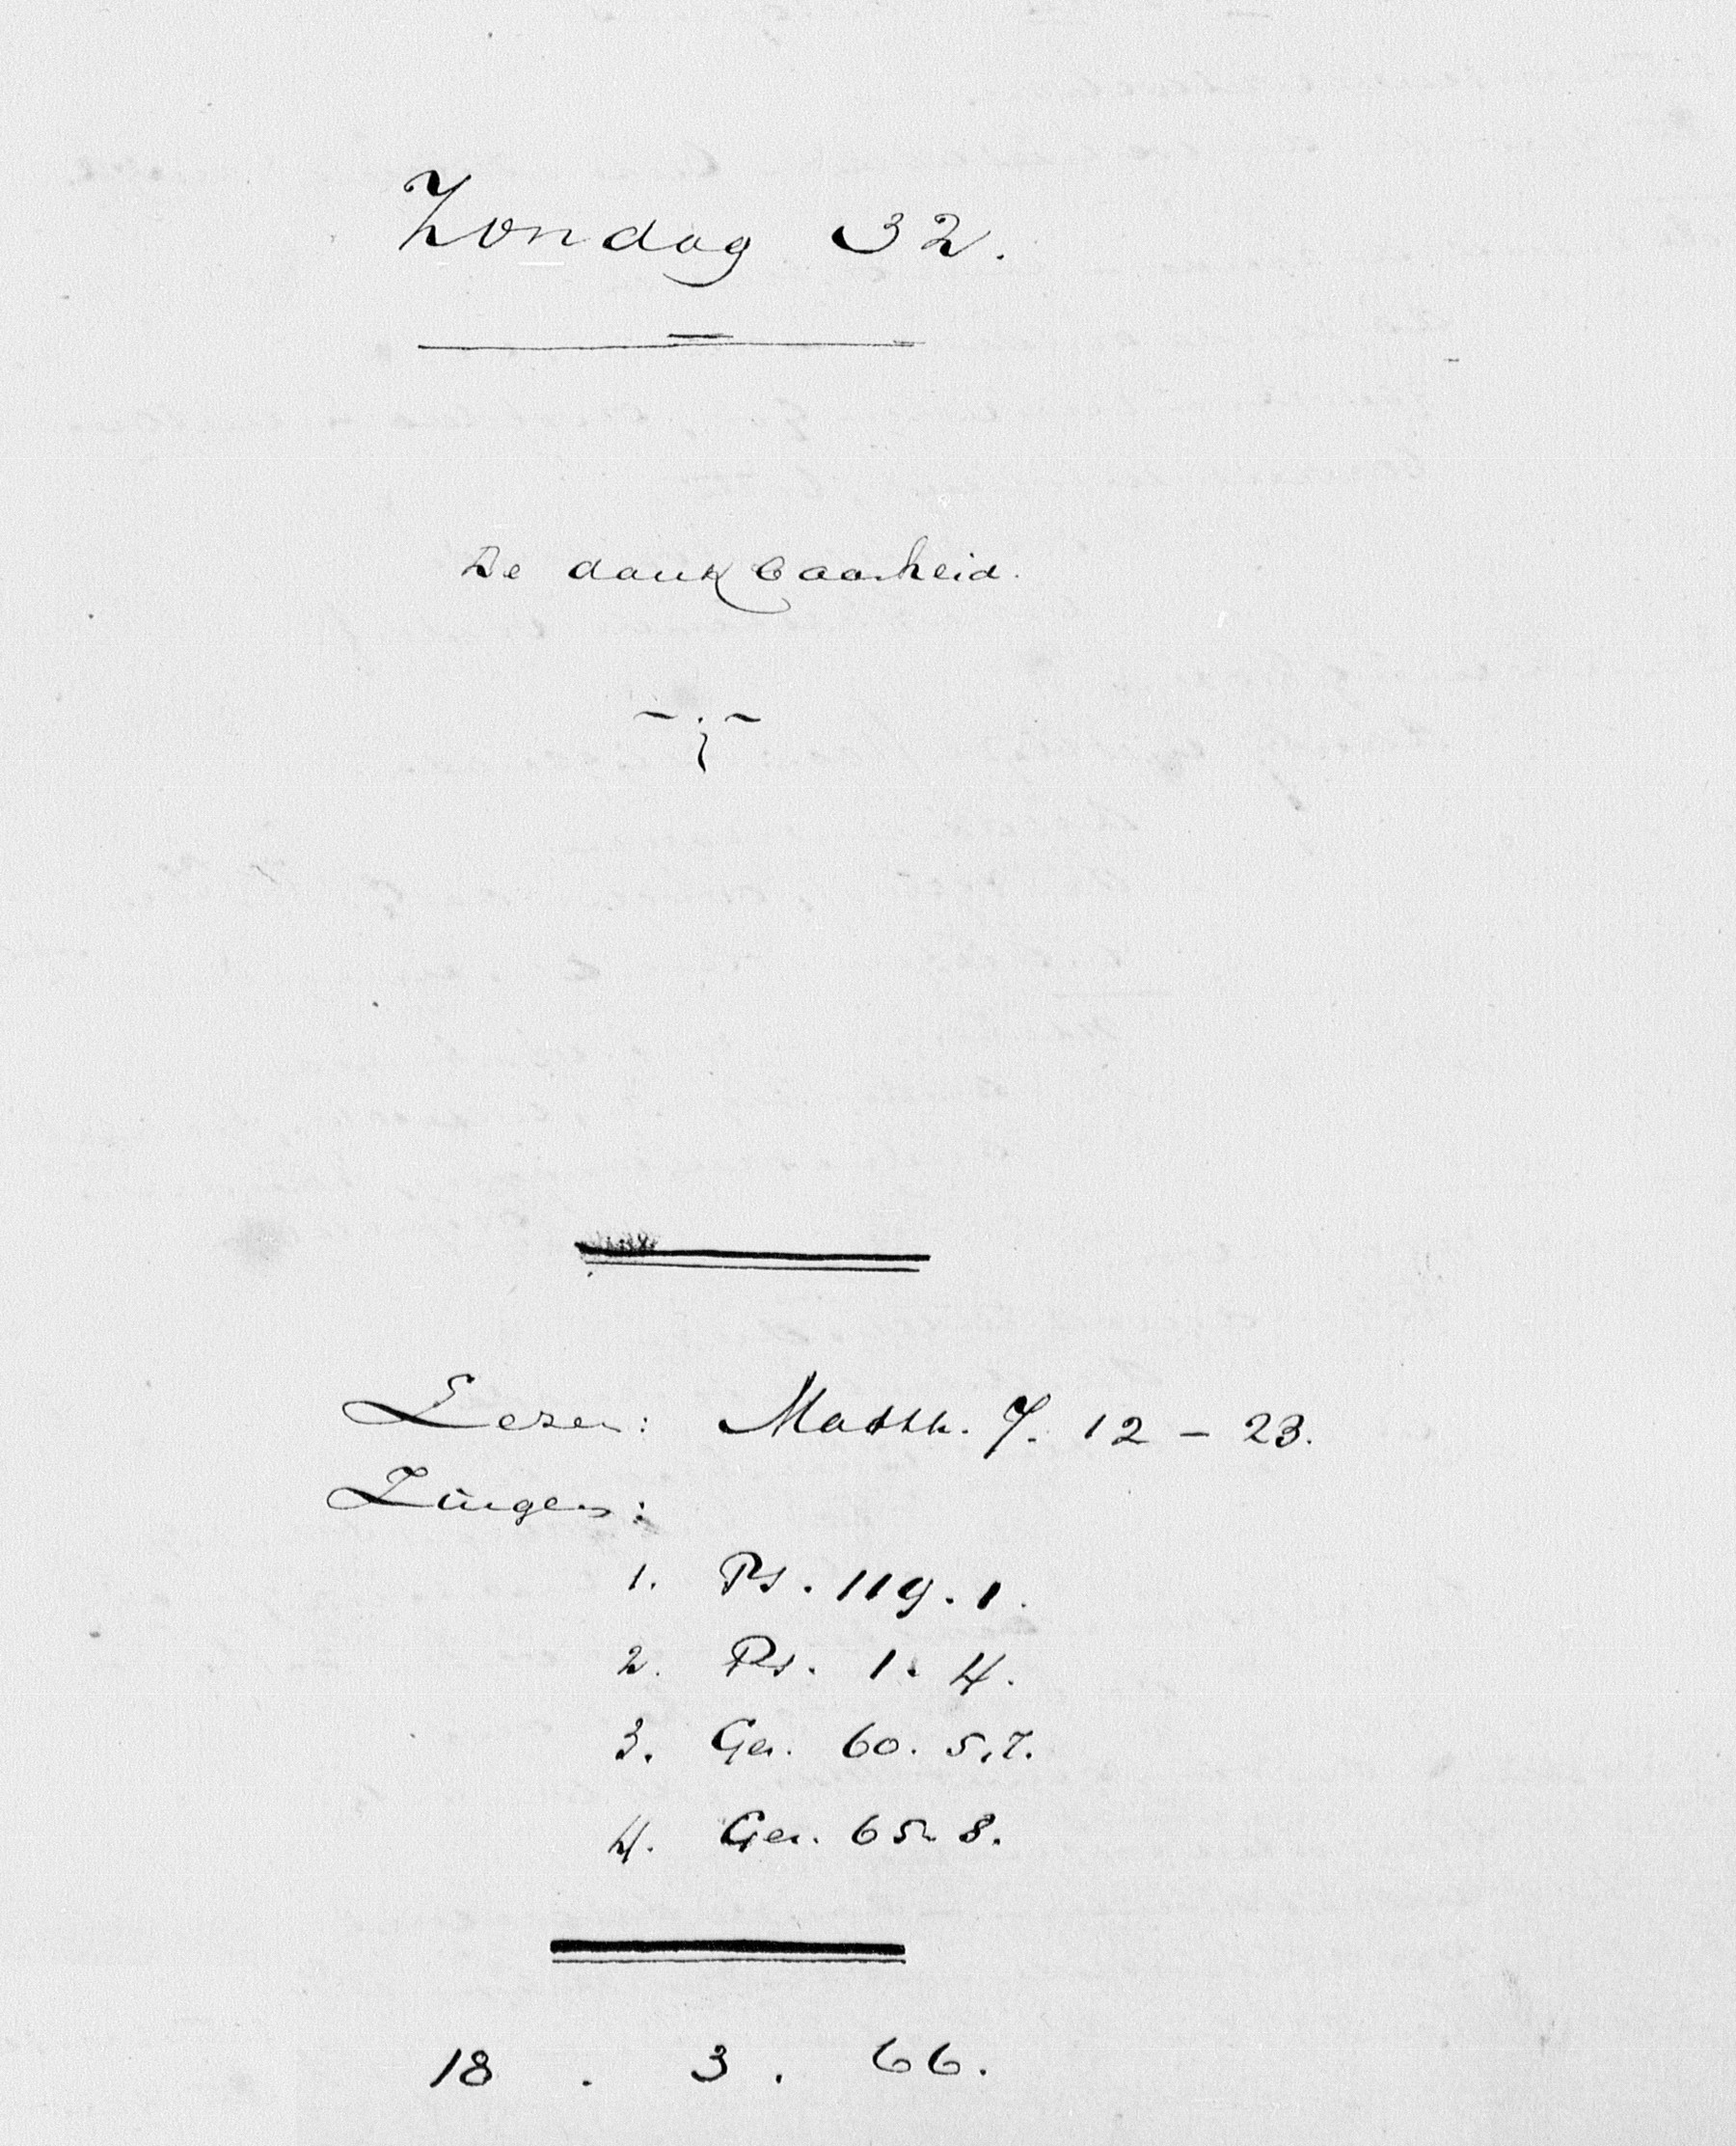 Zondag 32.
De dankbaarheid.
Lezen: Matth. 7. 12 - 23.
Zingen:
1. Ps. 119. 1.
2. Ps. 1. 4.
3. Gez. 60. 5.7.
4. Gez. 65. 8.
18 . 3 . 66.